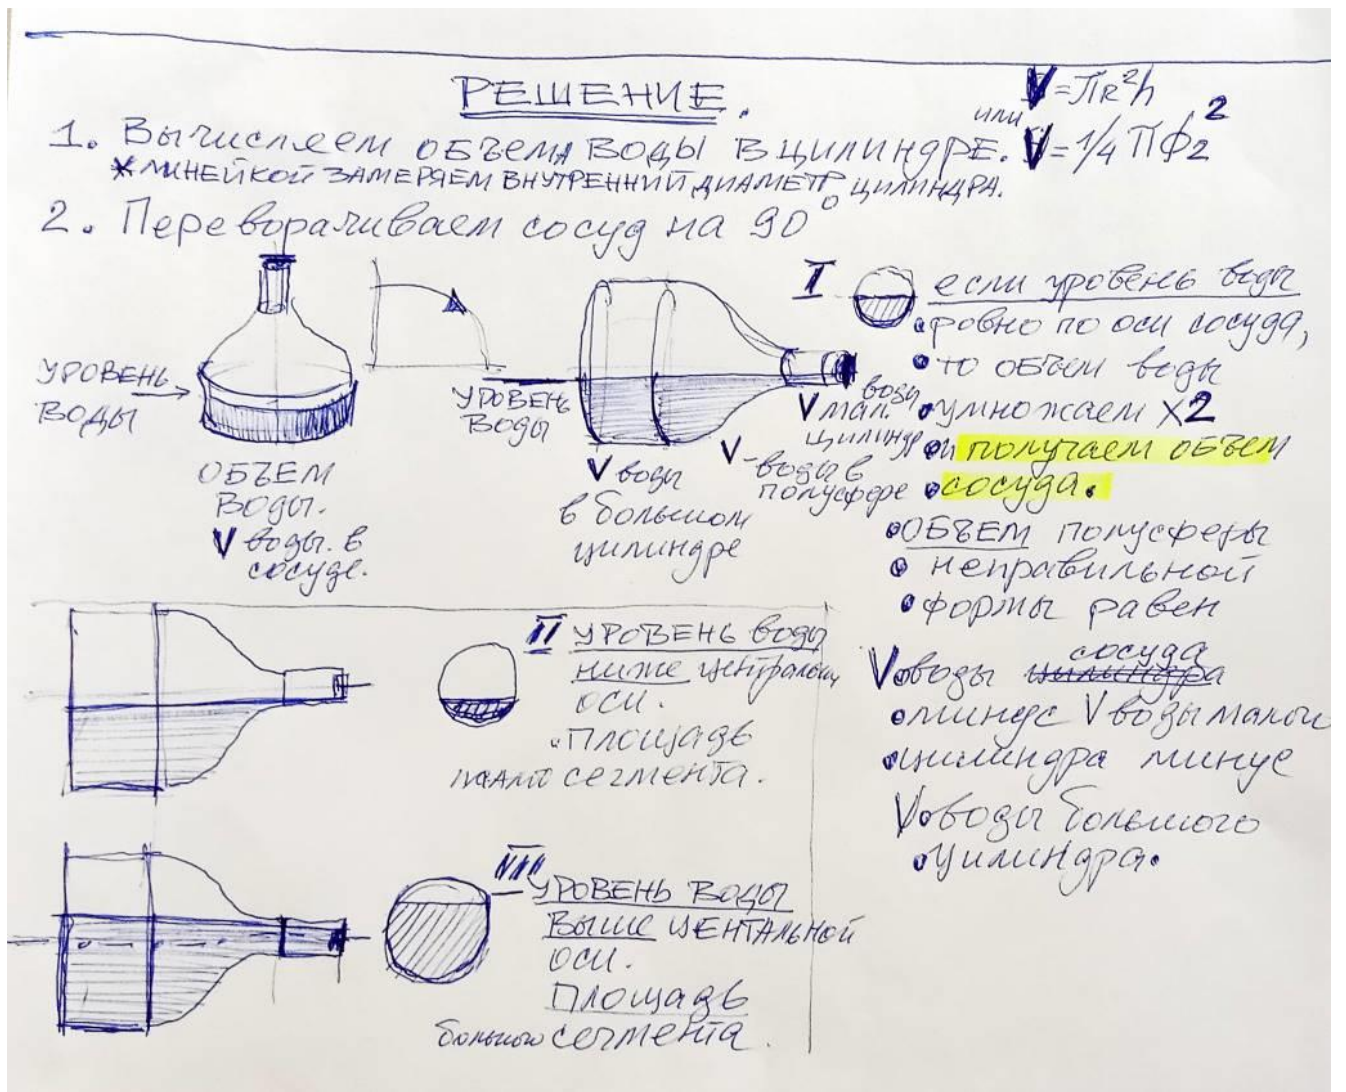 РЕШЕНИЕ.
V=πR²h
или
V=1/4 πФ2²
1. Вычисляем объема воды в цилиндре.
*линейкой замеряем внутренний диаметр цилиндра.
2. Переворачиваем сосуд на 90°
УРОВЕНЬ
ВОДЫ
ОБЪЕМ
ВОДЫ.
V воды. в
сосуде.
УРОВЕНЬ
ВОДЫ
V воды
в большом
цилиндре
V мал.
воды
цилиндр
V-воды в
полусфере
I если уровень воды
ровно по оси сосуда,
то объем воды
умножаем x2
и получаем объем
сосуда.
ОБЪЕМ полусферы
неправильной
формы равен
сосуда
V воды цилиндра
минус V воды малого
цилиндра минус
V воды большого
цилиндра.
II УРОВЕНЬ воды
ниже центральной
оси.
Площадь
сегмента.
III УРОВЕНЬ ВОДЫ
Выше ЦЕНТАЛЬНОЙ
оси.
Площадь
большого сегмента.